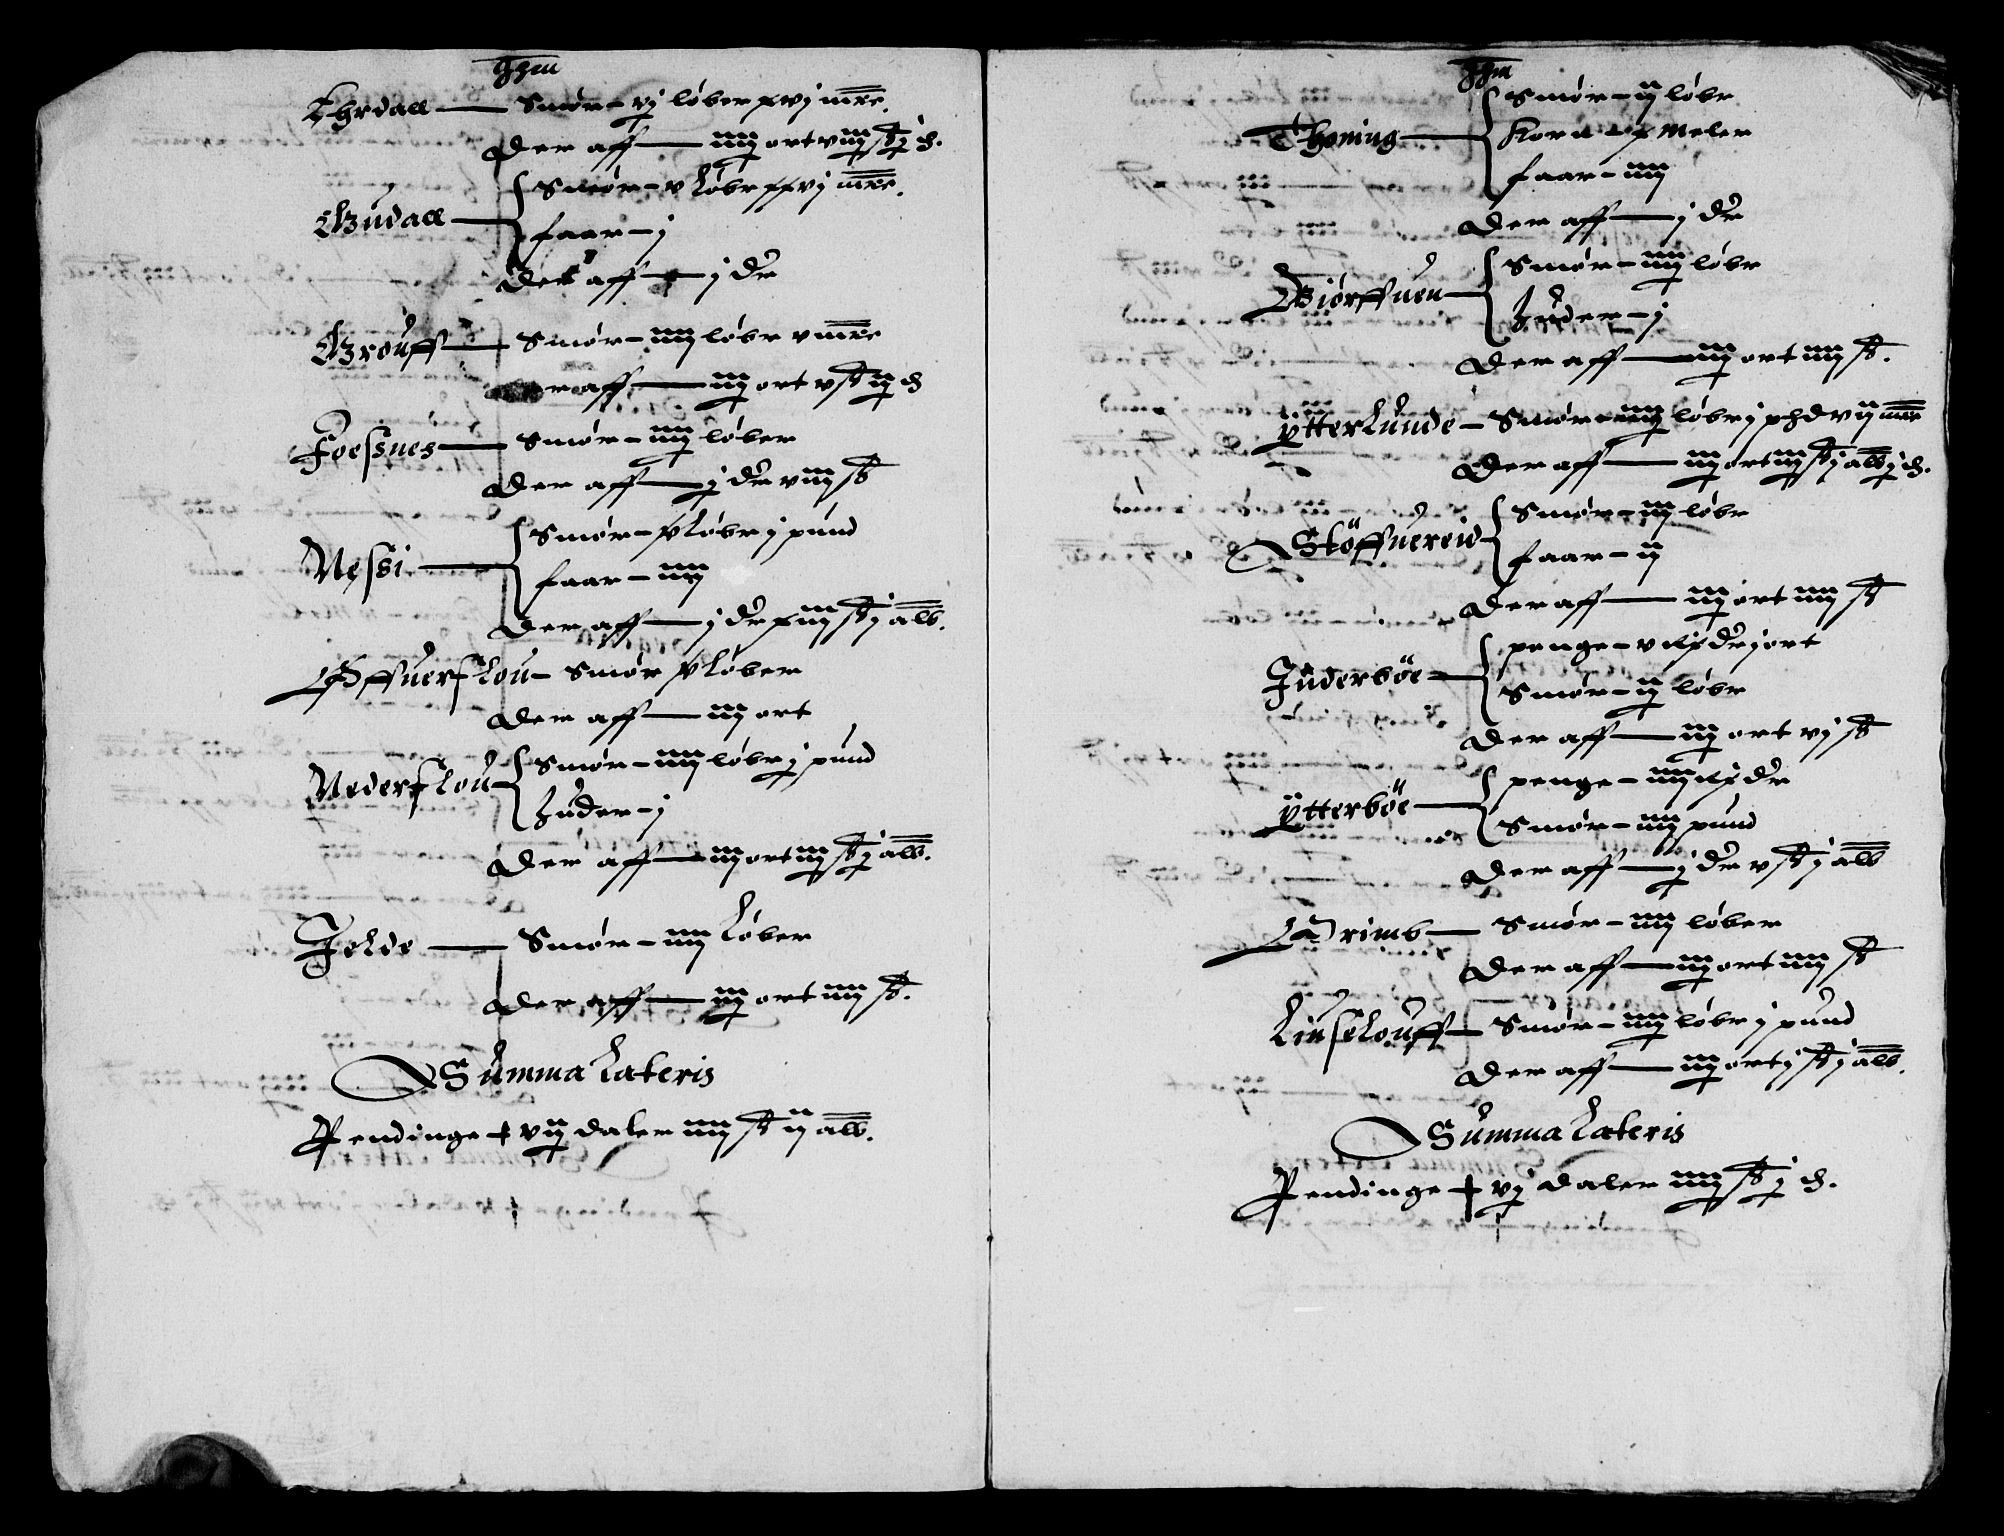 Thrdall — Smør – vj løber xvj mrc.
Der aff — iiij ort viij ß j d.
Gudall — Smør – v løbr xxvj mrc.
faar – j
Der aff — j dr
Grouff — Smør – iiij løbr v mrc
Der aff — iiij ort v ß ij d
Foessnes — Smør – iiij løber
Der aff — j dr viij ß
Nessi — Smør – x løbr j pund
faar – iiij
Der aff — j dr xiij ß j alb.
Offuerslou – Smør x løber
Der aff — iij ort
Nederslou Smør – iiij løbr j pund
huder – j
Der aff — iij ort iij ß j alb.
Jelde — Smør – iiij Løber
Der aff — iij ort iiij ß.
Summa Lateris
Pendinge + vij daler iiij ß ij alb.
Thoning — Smør – ij løbr
Korn – x meler
faar – iiij
Der aff — j dr
Biørffuen Smør – iiij løbr
huder – j
Der aff — iij ort iiij ß.
ÿtterlunde – Smør iiij løbr j phd vij mrc
Der aff — iij ort iij ß j alb j d.
Støffnereid Smør – iij løbr
faar – ij
Der aff — iij ort iiij ß
Jnderböe penge – v rixdr j ort
Smør – ij løbr
Der aff — iij ort vj ß
ÿtterböe — penge – iiij rixdr
Smør – iiij pund
Der aff — j dr v ß j alb
Grimb — Smør – iiij løber
Der aff — iij ort iiij ß
Linselouff – Smør – iiij løbr j pund
Der aff — iij ort j ß j alb.
Summa Lateris
Pendinge + vj daler iiij ß j d.